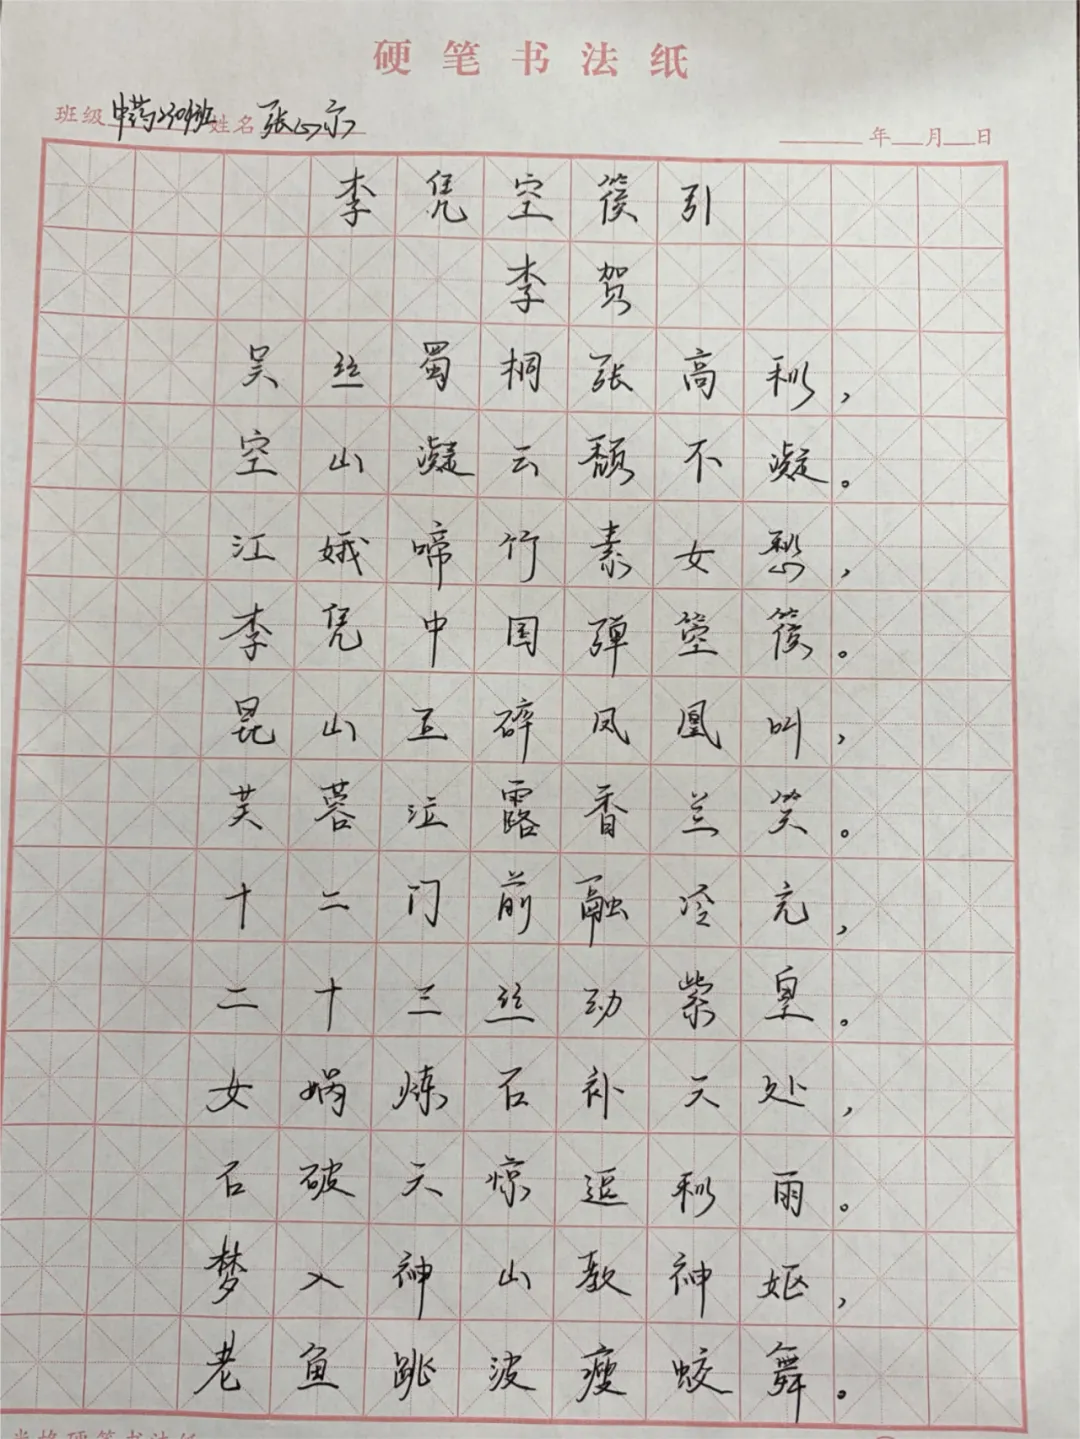 硬笔书法纸
班级 中药2304班 姓名 张心亦 年 月 日
李凭空篌引
李贺
吴丝蜀桐张高秋，
空山凝云颓不凝。
江娥啼竹素女愁，
李凭中国弹箜篌。
昆山玉碎凤凰叫，
芙蓉泣露香兰笑。
十二门前融冷充，
二十三丝动紫皇。
女娲炼石补天处，
石破天惊逗秋雨。
梦入神山教神妪，
老鱼跳波瘦蛟舞。